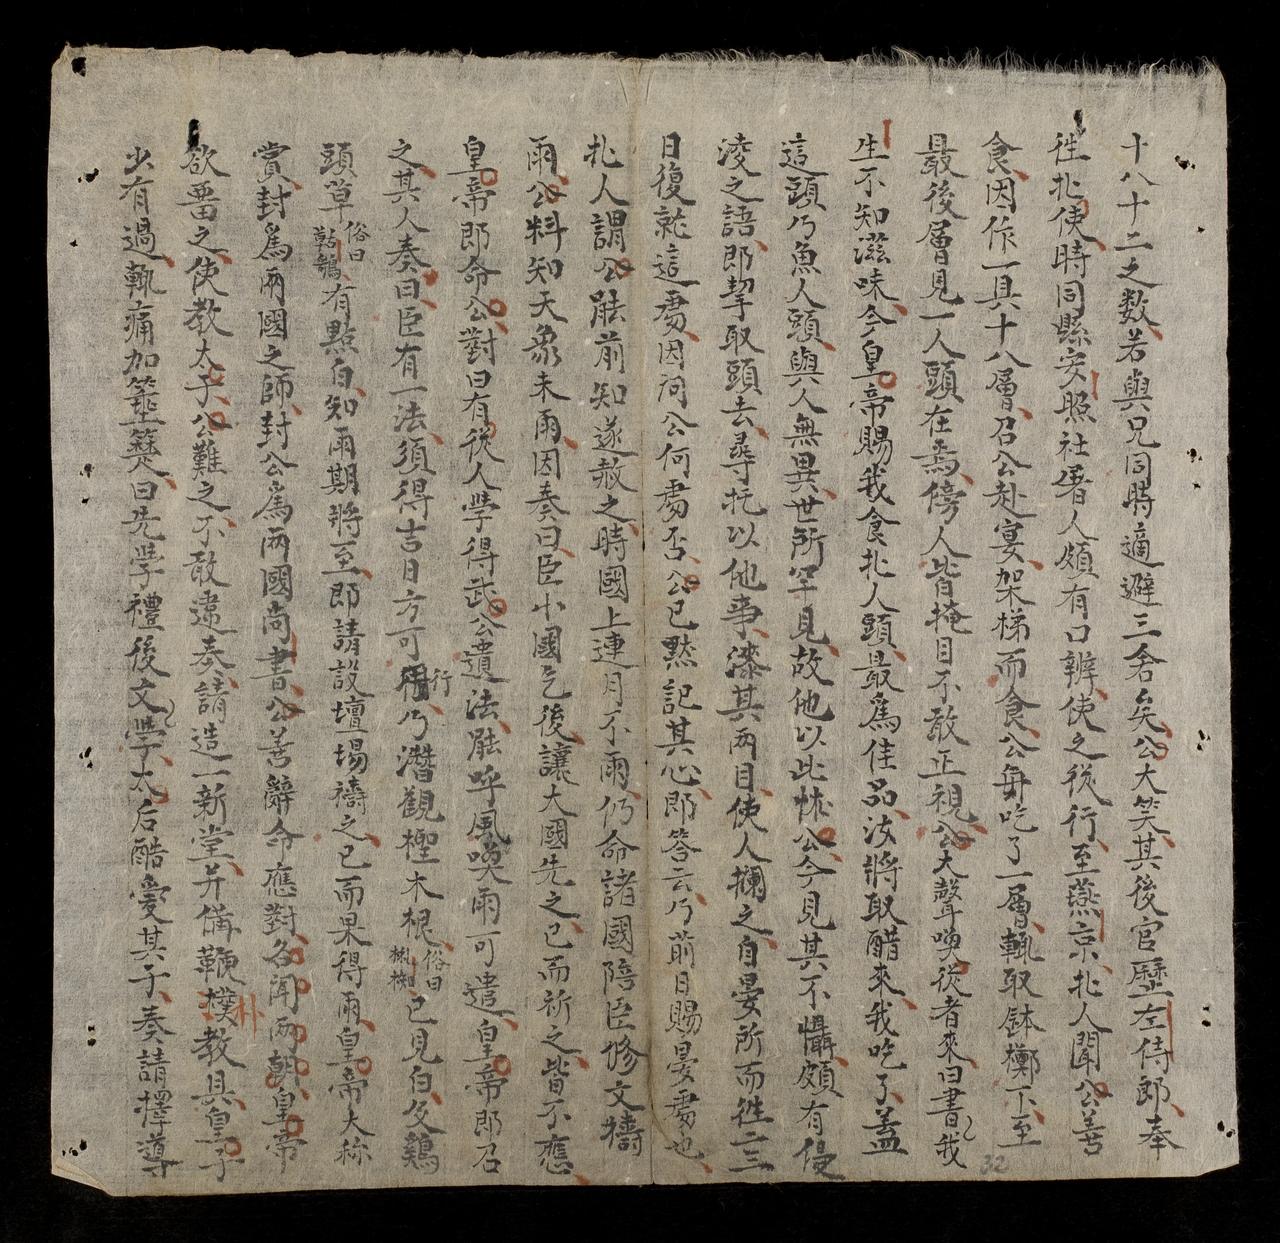 十八十二之数若與兄同時適避三舍矣公大笑其後官歷左侍郎奉
徃北使時同縣安照社屠人頗有口辨使之從行至燕京北人聞公善
食因作一具十八層召公赴宴架梯而食公每吃了一層輒取鉢擲下至
最後層見一人頭在焉傍人皆掩目不敢正視公大聲喚從者來曰書我
生不知滋味今皇帝賜我食北人頭最爲佳品汝將取醋來我吃了蓋
這頭乃魚人頭與人無異世所罕見故他以此怵公今見其不懾頗有侵
淩之語即挈取頭去尋托以他事漆其兩目使人攔之自晏所而徃二三
日復就這䖏因问公何䖏否公已黙記其心即答云乃前日賜晏䖏也
北人謂公能前知遂赦之時國上連月不雨仍命諸國陪臣修文禱
雨公料知天象未雨因奏曰臣小國乞後讓大國先之已而祈之皆不應
皇帝即命公對曰有從人學得武公遺法能呼風喚雨可遣皇帝即召
之其人奏曰臣有一法須得吉日方可行乃潛觀樫木根俗曰已見白及鷄
頭草俗曰有點白知雨期將至即請設壇場禱之已而果得雨皇帝大称
賞封爲兩國之師封公爲兩國尚書公善辭命應對名聞兩朝皇帝
欲畱之使教太子公難之不敢違奏請造一新堂并俻鞭撲教具皇子
少有過輒痛加箠筵曰先學禮後文學太后酷愛其子奏請擇導
32